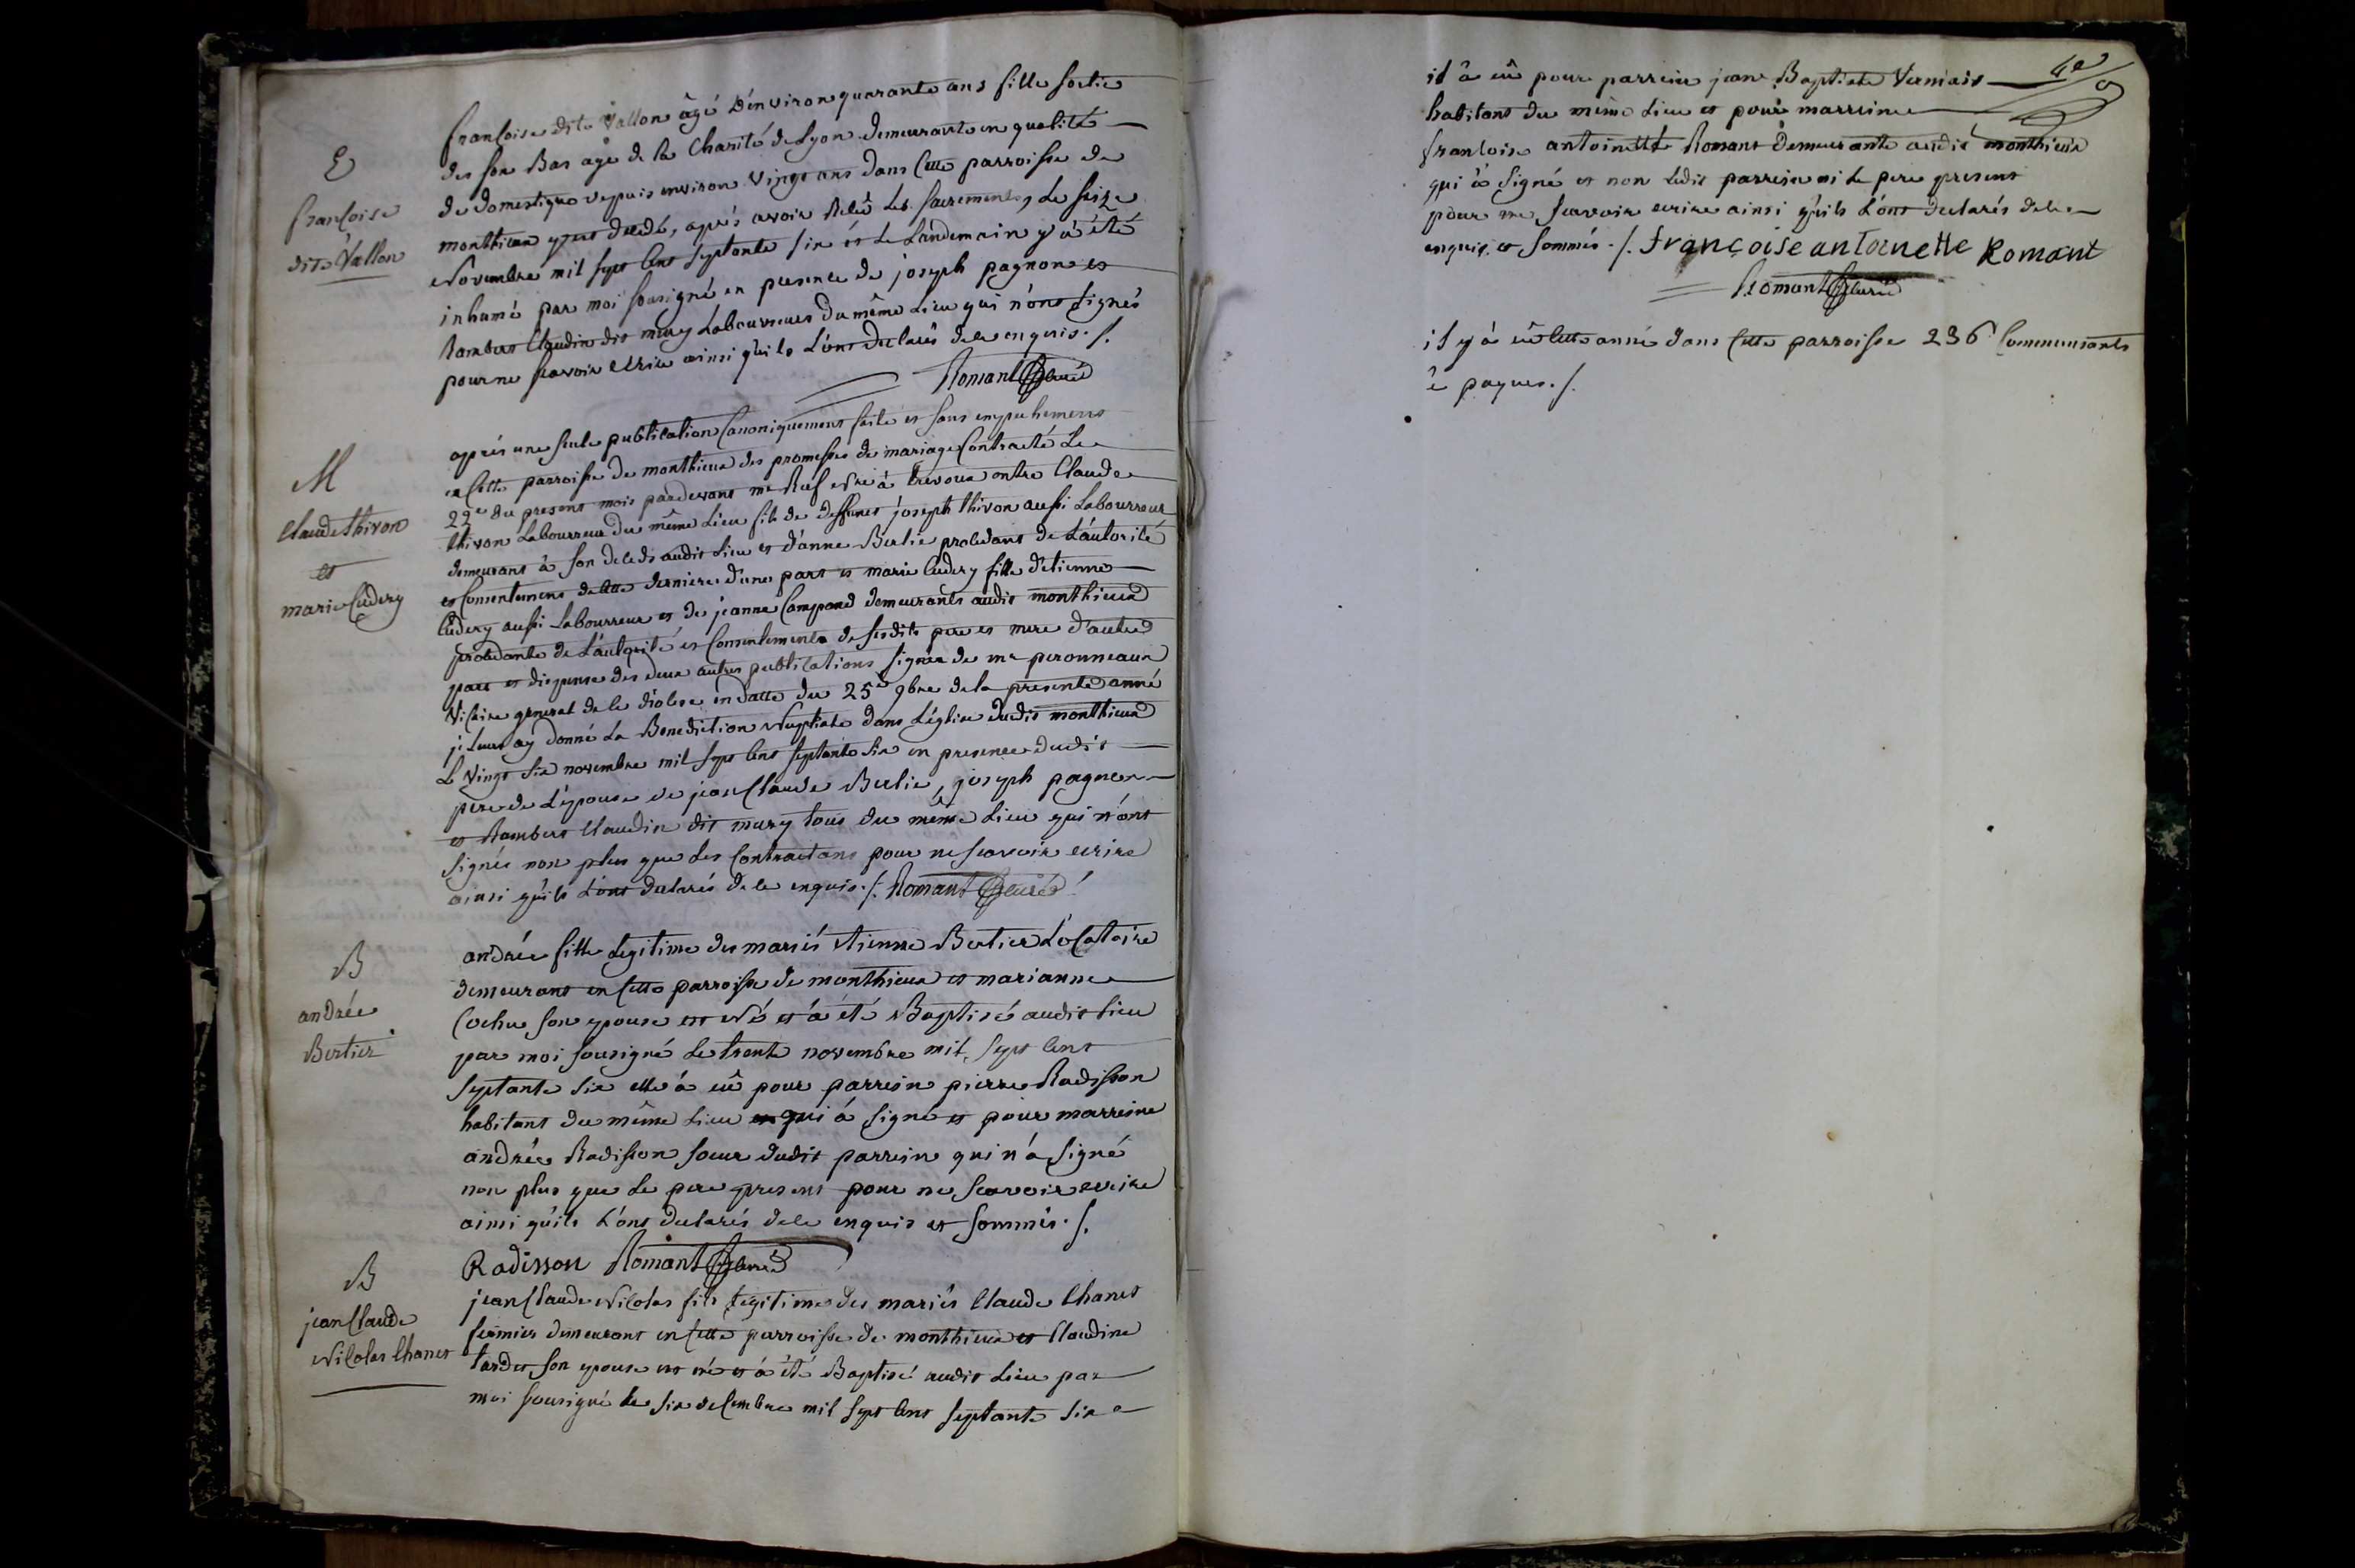 E
françoise
dite Vallon
françoise dite Vallon âgé d'environ quarante ans fille sortie
des son Bas âge de la Charité de Lyon demeurante en qualité
de domestique depuis environ vingt ans dans cette parroisse de
monthieux y est decedé, aprés avoir Reçû les sacrements, Le seize
Novembre mil sept cent septante six et Le Landemain y à été
inhumé par moi sousigné en presence de joseph pagnon et
Rambert Claudin dit mury Laboureurs du même Lieu qui n'ont signés
pour ne sçavoir ecrire ainsi qu'ils L'ont declarés de ce enquis ./.
Romant Curé
M
Claude thivon
et
marie Cudery
aprés une seule publication Canoniquement faite et sans empechement
en cette parroisse de monthieux des promesses de mariage Contracté Le
22e du present mois pardevant me Ruf Nre à trevoux entre Claude
thivon Labourreur du même Lieu fils de deffunct joseph thivon aussi Labourreur
demeurant à son deceds audit Lieu et d'anne Berlie procedant de L'autorité
et Consentement de cette derniere d'une part et marie Cudery fille d'etienne
Cudery aussi Labourreur et de jeanne Campand demeurants audit monthieux
procedante de L'autorité et Consentements de sesdits pere et mere d'autre
part et dispense des deux autres publications signée de mr peronneaux
Vicaire general de ce diocese en datte du 25e 9bre de la presente anné
je Leurs ay donné La Benediction Nuptiale dans L'église dudit monthieux
Le Vingt six novembre mil sept cent septante six en presence dudit
pere de L'epouse de jean Claude Berlie, joseph pagnon
et Rambert Claudin dit mury tous du même Lieu qui n'ont
signés non plus que Les Contractans pour ne sçavoir ecrire
ainsi qu'ils L'ont declarés de ce enquis ./. Romant Curé
B
andrée
Bertier
andrée fille Legitime des mariés etienne Bertier Locataire
demeurant en cette parroisse de monthieux et marianne
Cochu son epouse est Né et à été Baptisé audit Lieu
par moi sousigné Le trente novembre mil sept cent
septante six elle à eû pour parrein pierre Radisson
habitant du même Lieu qui à signé et pour marreine
andrée Radisson soeur dudit parrein qui n'à signé
non plus que Le pere present pour ne sçavoir ecrire
ainsi qu'ils L'ont declarés de ce enquis et sommés ./.
Radisson Romant Curé
B
jean Claude
Nicolas Chanet
jean Claude Nicolas fils Legitime des mariés Claude Chanet
fermier demeurant en cette parroisse de monthieux et Claudine
tardet son epouse est né et à été Baptisé audit Lieu par
moi sousigné Le six decembre mil sept cent septante six
il à eû pour parrein jean Baptiste Verniais
habitant du même Lieu et pour marreine
francoise antoinette Romant demeurante audit monthieux
qui à signé et non Ledit parrein ni Le pere present
pour ne sçavoir ecrire ainsi qu'ils L'ont declarés de ce
enquis et sommés ./. françoise antoinette Romant
Romant Curé
il y à eû cette anné dans cette parroisse 236 Communiants
à paques ./.